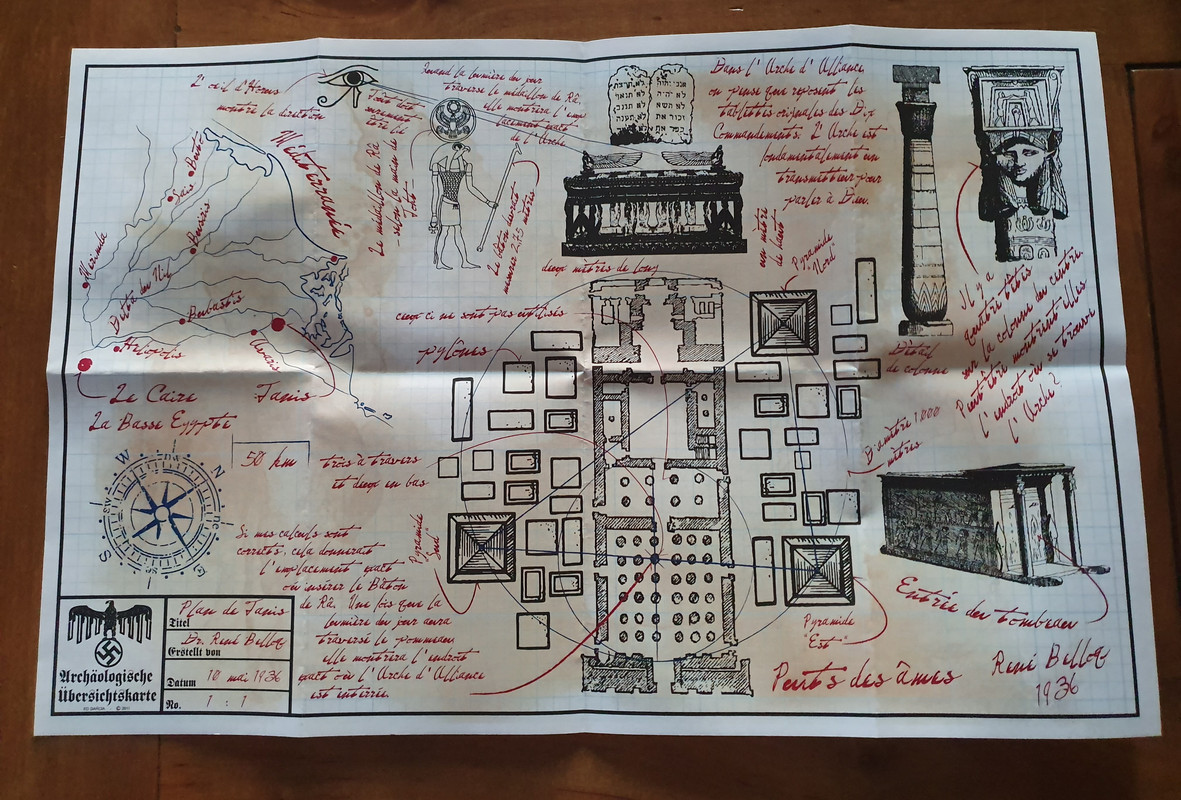 L'œil d'Horus
montre la direction
Quand la lumière du jour
traverse le médaillon de Râ,
elle montrera l'emp
lacement exact
de l'Arche
Tanis doit
Le médaillon de Râ
Le bâton devrait
mesurer 2,45 mètres
אנכי יהוה
לא יהיה
לא תשא
זכור את
לא תרצח
לא תנאף
לא תגנב
לא תענה
Dans l'Arche d'Alliance,
on pense que reposent les
tablettes originales des Dix
Commandements. L'Arche est
fondamentalement un
transmetteur pour
parler à Dieu.
un mètre
de haut
deux mètres de long
Méditerranée
Buto
Saïs
Busiris
Merimda
Delta du Nil
Bubastis
Héliopolis
Avaris
Le Caire
Tanis
La Basse Egypte
50 km
W
N
S
ceux ci ne sont pas utilisés
pylônes
Pyramide
"Nord"
Détail
de colonne
Il y a
quatre têtes
sur la colonne du centre.
Peut être montrent elles
l'endroit où se trouve
l'Arche?
Diamètre 1.000
mètres
trois à travers
et deux en bas
Pyramide
Sud
Si mes calculs sont
corrects, cela donnerait
l'emplacement exact
où insérer le Bâton
de Râ. Une fois que la
lumière du jour aura
traversé le pommeau
elle montrera l'endroit
exact où l'Arche d'Alliance
est enterrée.
Pyramide
"Est"
Entrée du tombeau
Puits des âmes
René Belloq
1936
Archäologische
Übersichtskarte
Plan de Tanis
Titel
Dr. René Belloq
Erstellt von
Datum 10 mai 1936
No. 1 : 1